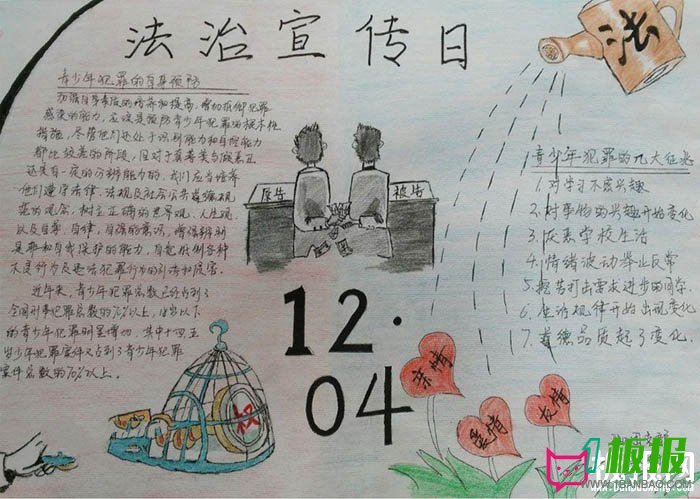 法治宣传日
法
青少年犯罪的自身预防
加强自身素质的培养和提高,增切抵御犯罪
感染的能力,应该是预防青少年犯罪的根本性
措施,尽管他们还处于识别能力和自控能力
都比较差的阶段,但对于真善美与假恶丑
还具有一定的分辨能力的,我们应当培养
他们遵守法律、法规及社会公共道德规
范的观念,树立正确的世界观、人生观
以及自尊、自律、自强的意识,增强辨别
是非和自我保护的能力,自觉抵制各种
不良行为及违法犯罪行为的引诱和侵害。
近年来,青少年犯罪总数已经占到了
全国刑事犯罪总数的70%以上,
的青少年犯罪则呈增 其中十四五
岁少年犯罪案件又占到了青少年犯罪
案件总数的70%以上。
原告
被告
12.
04
权
青少年犯罪的九大征兆
1.对学习不感兴趣
2.对事物的兴趣开始变化
3.厌恶学校生活
4.情绪波动举止反常
5.挖苦打击要求进步的同学
6.生活规律开始出现变化
7.道德品质起了变化
亲情
爱情
友情
板报网
WWW.1BANBAO.COM